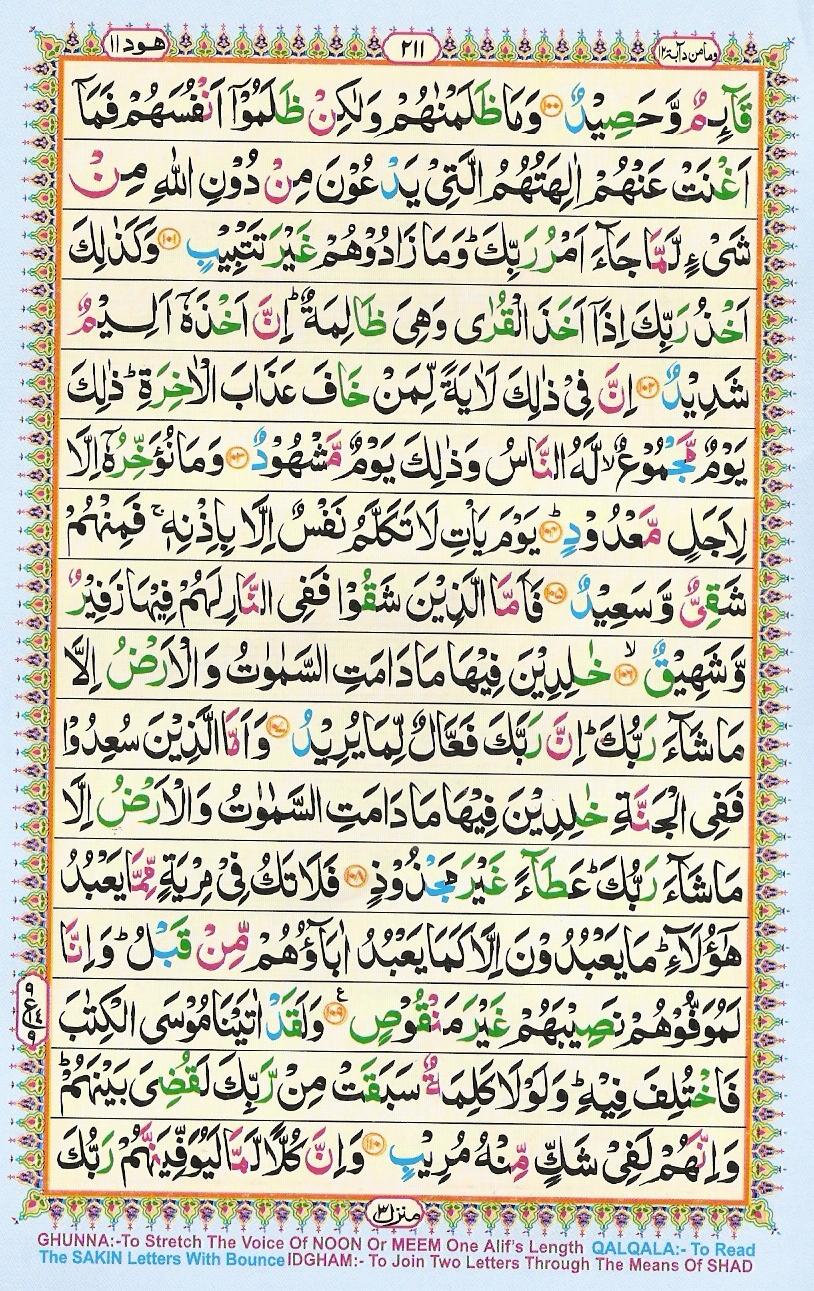 وما من دآبة ۱۲
۲۱۱
هود ۱۱
قَآىِٕمٌ وَّ حَصِیْدٌ ۝۱۰۰ وَ مَا ظَلَمْنٰهُمْ وَ لٰكِنْ ظَلَمُوْۤا اَنْفُسَهُمْ فَمَاۤ
اَغْنَتْ عَنْهُمْ اٰلِهَتُهُمُ الَّتِیْ یَدْعُوْنَ مِنْ دُوْنِ اللّٰهِ مِنْ
شَیْءٍ لَّمَّا جَآءَ اَمْرُ رَبِّكَ ؕ وَ مَا زَادُوْهُمْ غَیْرَ تَتْبِیْبٍ ۝۱۰۱ وَ كَذٰلِكَ
اَخْذُ رَبِّكَ اِذَاۤ اَخَذَ الْقُرٰی وَ هِیَ ظَالِمَةٌ ؕ اِنَّ اَخْذَهٗۤ اَلِیْمٌ
شَدِیْدٌ ۝۱۰۲ اِنَّ فِیْ ذٰلِكَ لَاٰیَةً لِّمَنْ خَافَ عَذَابَ الْاٰخِرَةِ ؕ ذٰلِكَ
یَوْمٌ مَّجْمُوْعٌ ۙ لَّهُ النَّاسُ وَ ذٰلِكَ یَوْمٌ مَّشْهُوْدٌ ۝۱۰۳ وَ مَا نُؤَخِّرُهٗۤ اِلَّا
لِاَجَلٍ مَّعْدُوْدٍ ۝۱۰۴ یَوْمَ یَاْتِ لَا تَكَلَّمُ نَفْسٌ اِلَّا بِاِذْنِهٖ ۚ فَمِنْهُمْ
شَقِیٌّ وَّ سَعِیْدٌ ۝۱۰۵ فَاَمَّا الَّذِیْنَ شَقُوْا فَفِی النَّارِ لَهُمْ فِیْهَا زَفِیْرٌ
وَّ شَهِیْقٌ ۙ۝۱۰۶ خٰلِدِیْنَ فِیْهَا مَا دَامَتِ السَّمٰوٰتُ وَ الْاَرْضُ اِلَّا
مَا شَآءَ رَبُّكَ ؕ اِنَّ رَبَّكَ فَعَّالٌ لِّمَا یُرِیْدُ ۝۱۰۷ وَ اَمَّا الَّذِیْنَ سُعِدُوْا
فَفِی الْجَنَّةِ خٰلِدِیْنَ فِیْهَا مَا دَامَتِ السَّمٰوٰتُ وَ الْاَرْضُ اِلَّا
مَا شَآءَ رَبُّكَ ؕ عَطَآءً غَیْرَ مَجْذُوْذٍ ۝۱۰۸ فَلَا تَكُ فِیْ مِرْیَةٍ مِّمَّا یَعْبُدُ
هٰۤؤُلَآءِ ؕ مَا یَعْبُدُوْنَ اِلَّا كَمَا یَعْبُدُ اٰبَآؤُهُمْ مِّنْ قَبْلُ ؕ وَ اِنَّا
لَمُوَفُّوْهُمْ نَصِیْبَهُمْ غَیْرَ مَنْقُوْصٍ ۝۱۰۹ ع وَ لَقَدْ اٰتَیْنَا مُوْسَی الْكِتٰبَ
۹ ع ۱۴ ۹
فَاخْتُلِفَ فِیْهِ ؕ وَ لَوْ لَا كَلِمَةٌ سَبَقَتْ مِنْ رَّبِّكَ لَقُضِیَ بَیْنَهُمْ ؕ
وَ اِنَّهُمْ لَفِیْ شَكٍّ مِّنْهُ مُرِیْبٍ ۝۱۱۰ وَ اِنَّ كُلًّا لَّمَّا لَیُوَفِّیَنَّهُمْ رَبُّكَ
منزل ۳
GHUNNA:-To Stretch The Voice Of NOON Or MEEM One Alif's Length QALQALA:- To Read
The SAKIN Letters With Bounce IDGHAM:- To Join Two Letters Through The Means Of SHAD